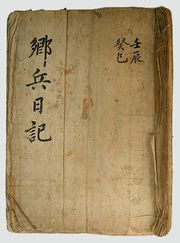 壬辰
癸巳
鄕兵日記